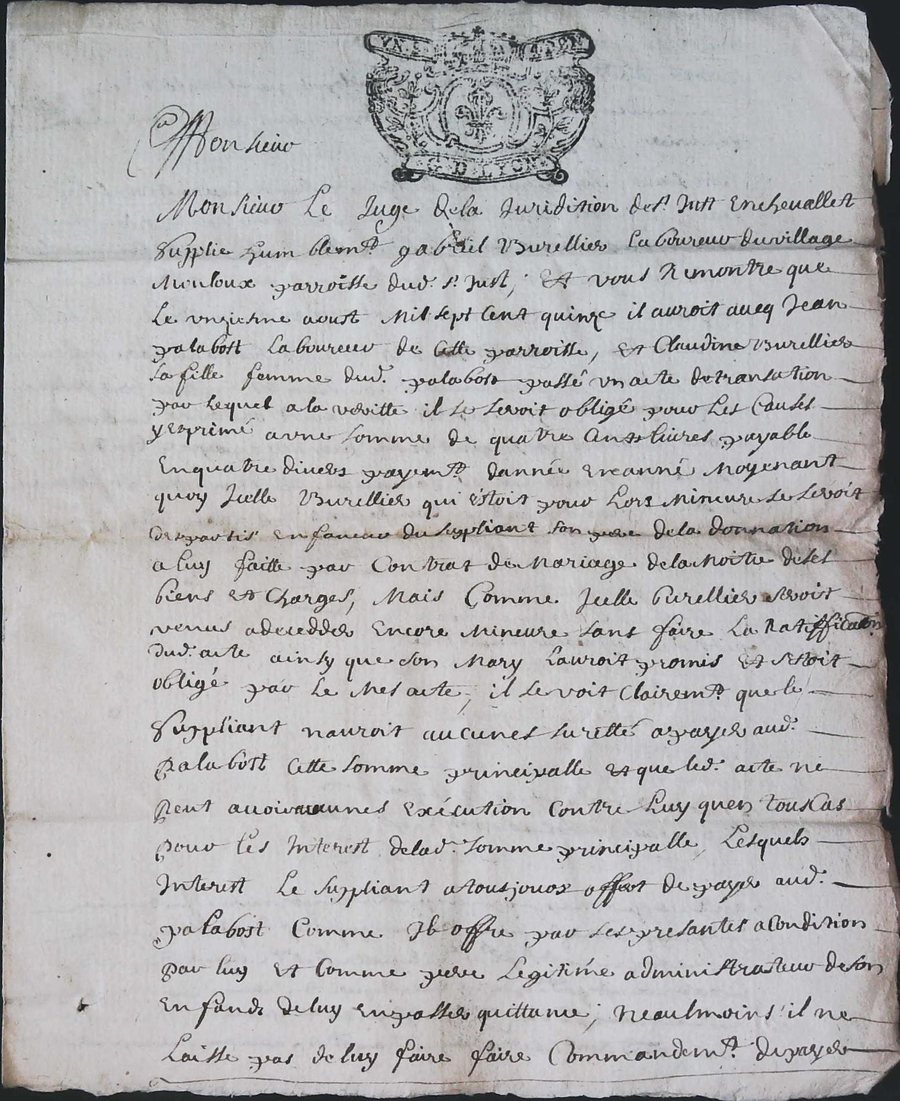 G. D. LYON
Monsieur
Monsieur Le Juge dela Juridition de st. Just Enchevallet
Supplie humblemt. gabriel Burellier Laboureur du village
Mouloux parroisse dud. st. Just, Et vous Remontre que
Le unziesme aoust Mil sept Cent quinze il auroit aveq Jean
palabost Laboureur de Cette parroisse, Et Claudine Burellier
sa fille femme dud. palabost passé un acte de transation
par lequel a la veritte il se seroit obligé pour Les Causes
y exprimé a une somme de quatre Cents livres payable
En quatre divers payemt. dannée en année Moyenant
quoy Jcelle Burellier qui Estoit pour Lors Mineure se seroit
despartis en faveur du suppliant son pere de la donnation
a luy faitte par Contrat de Mariage de la Moitie de ses
biens Et Charges, Mais Comme Jcelle burellier seroit
venus a decedder Encore Mineure sans faire La Ratiffication
dud. acte ainsy que son Mary Lauroit promis Et sestoit
obligé par Le Mes acte, il se voit Clairemt. que le
Suppliant nauroit aucunes suretté a payer aud.
palabost Cette somme principalle Et que led. acte ne
peut avoir aucunes Exécution Contre Luy quen tous Cas
pour les Interest de lad. somme principalle, Lesquels
Interest Le suppliant a tousjours offert de payer aud.
palabost Comme Il offre par ses presantes a Condition
par luy Et Comme pere Legitime administrateur de son
Enfand de luy En passer quittance, neaulmoins il ne
Laisse pas de luy faire faire Commandemt. de payer